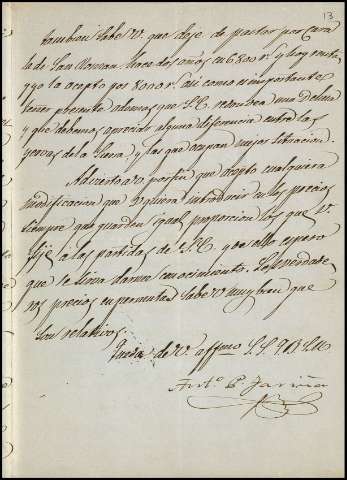 13
tambien sabe V. que deje de pastar por Cara
la de San Roman hace dos años en 6800 r.s y hoy
yo la acepto por 8000 r.s asi como es importante
tener presente ademas que S.E. una Dehesa
y que debemos apreciar alguna diferencia entre las
yervas de la Sierra y las que ocupan mejor situacion.
Advierto a V. por fin que acepto cualquiera
modificacion que V. quiera introducir en los precios
siempre que guarden igual proporcion los que V.
fije a las partidas de S.E. y de ello espero
que se sirva darme conocimiento. Los verdade
ros precios en permuta sabe V. muy bien que
son relativos.
Queda de V. affmo S.S. Q.B.S.M.
Ant.o P. Fariña